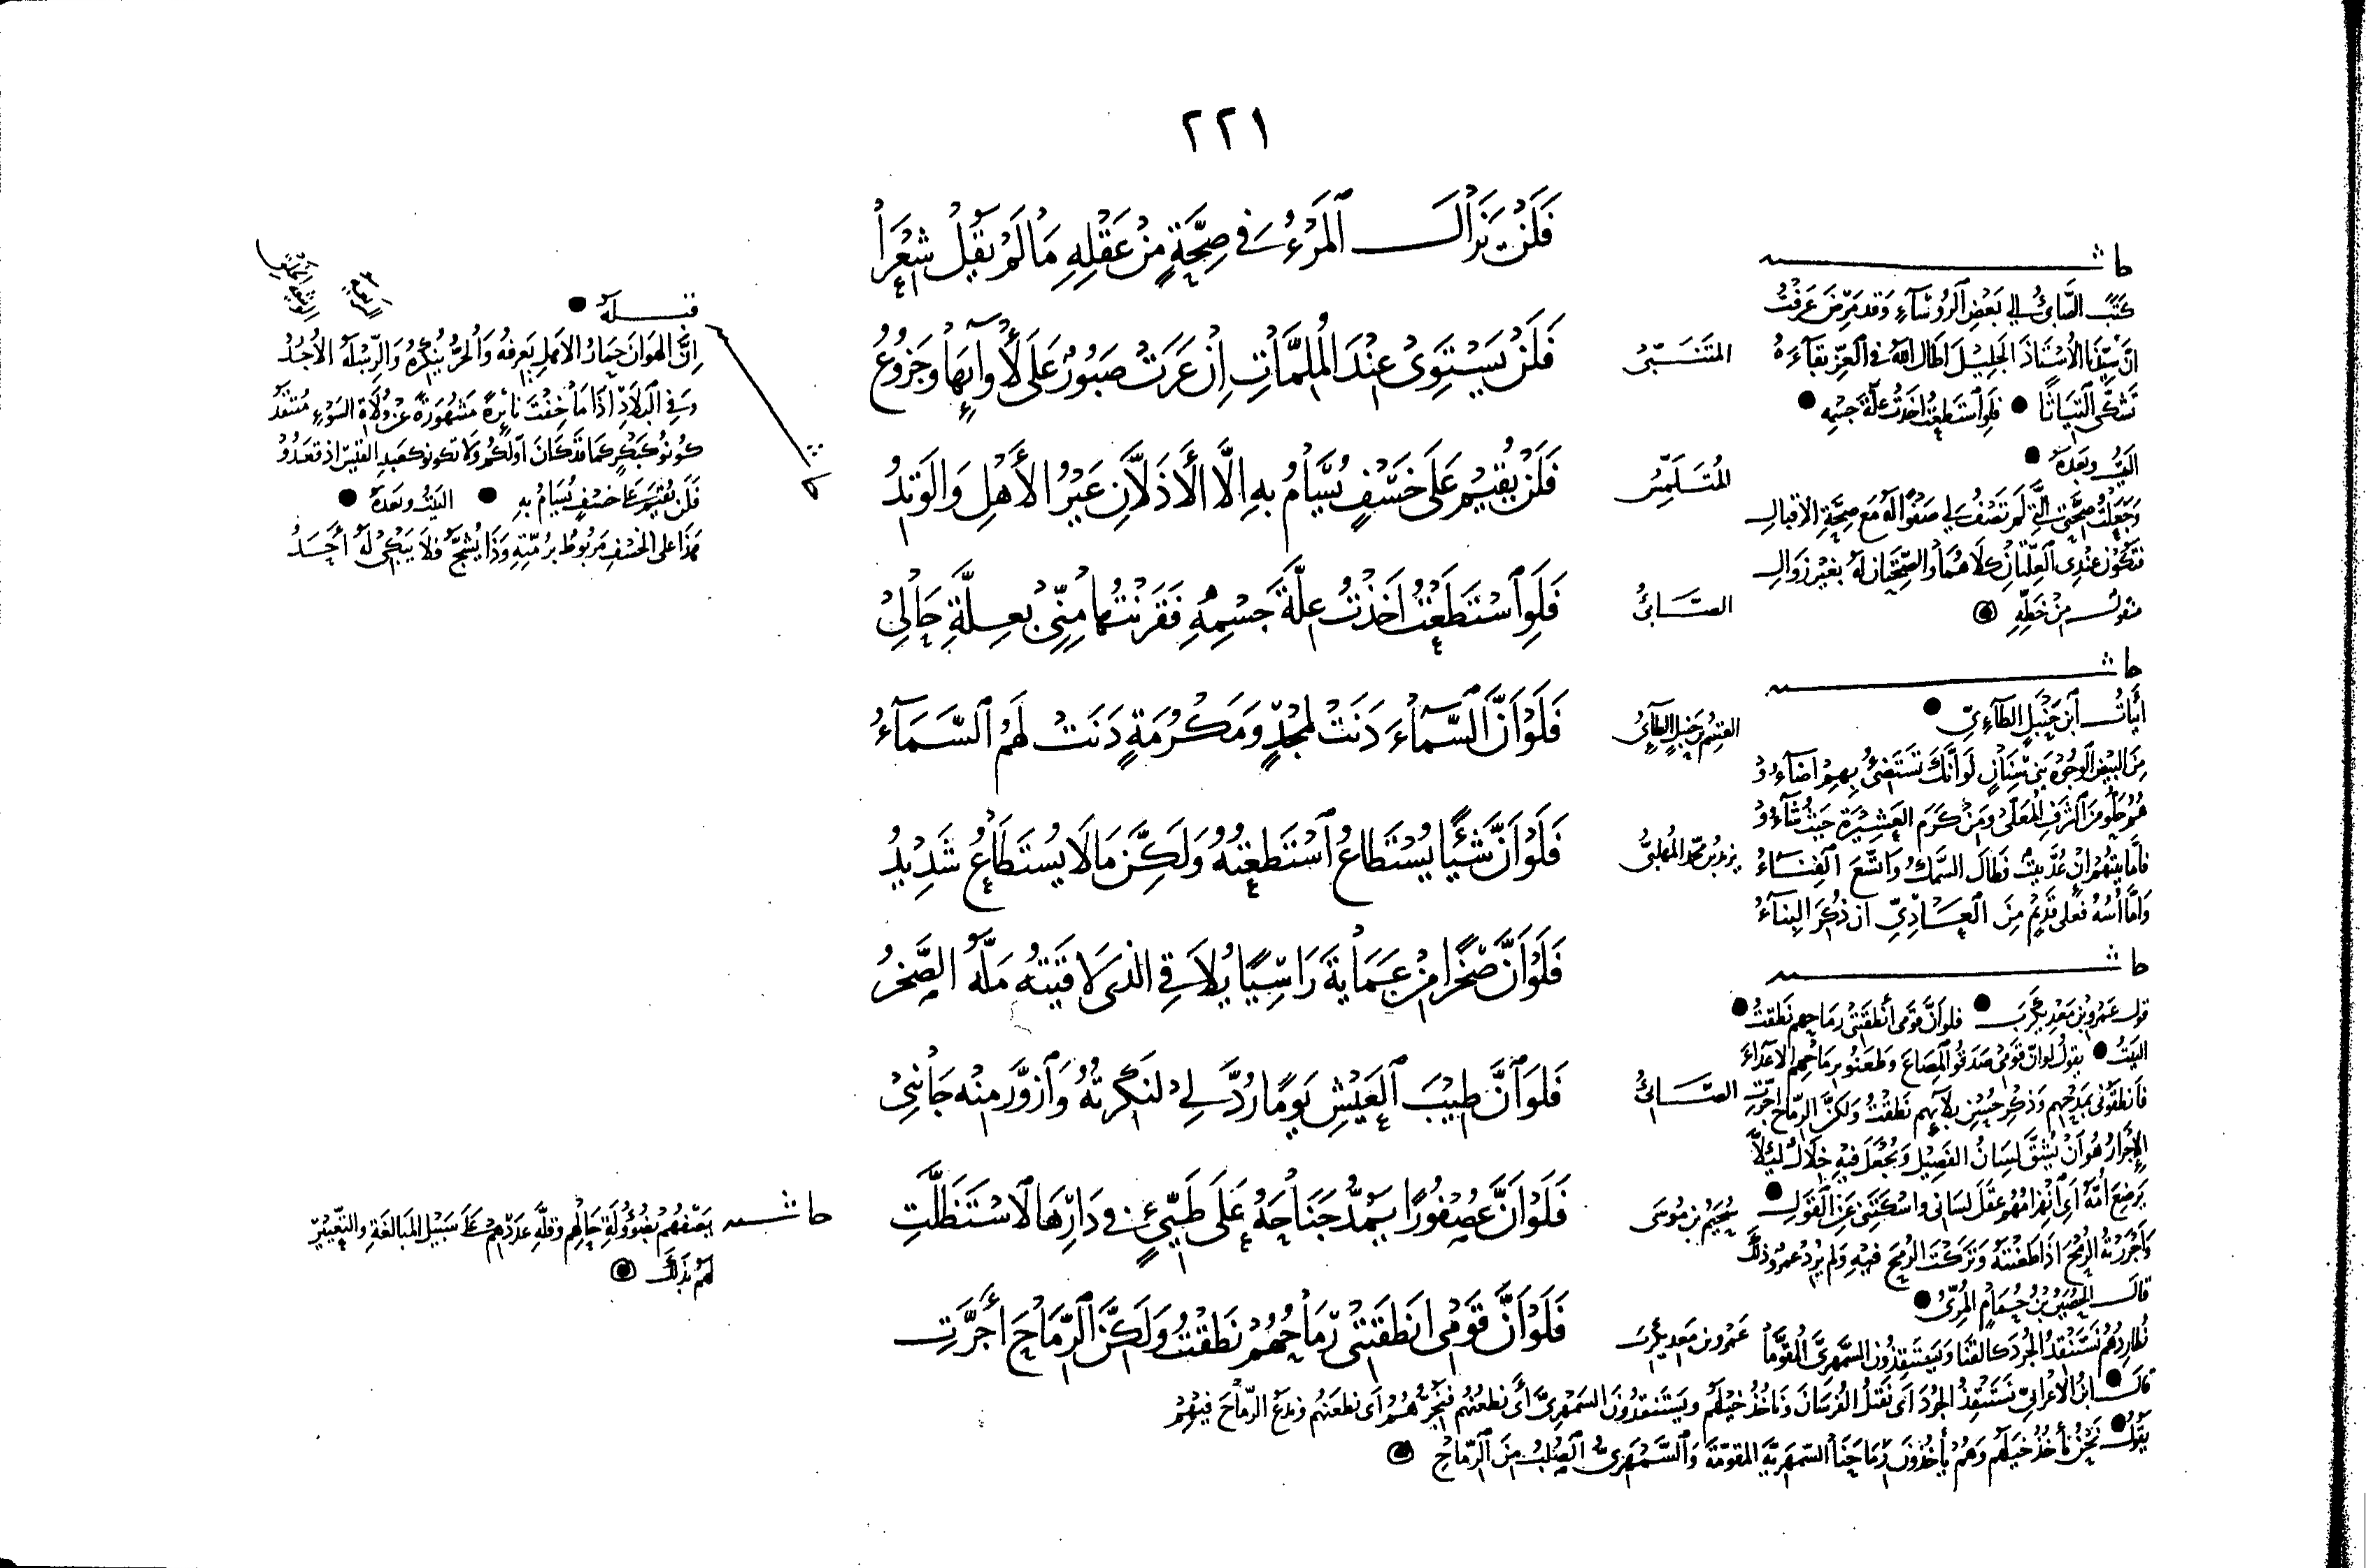 ٢٢١
فَلَنْ يَزَالَ ٱلْمَرْءُ فِي صِحَّةٍ مِنْ عَقْلِهِ مَا لَمْ يَقُلْ شِعْرَا
فَلَنْ يَسْتَوِي عِنْدَ الْمُلِمَّاتِ اِنْ عَرَتْ صَبُورٌ عَلَى لَأْوَآئِهَا وَجَزُوعُ
المتنبّي
فَلَنْ يُقِيْمَ عَلَى خَسْفٍ يُسَامُ بِهِ اِلَّا الْأَذَلَّانِ عَيْرُ الْأَهْلِ وَالْوَتِدُ
المُتَلَمِّسُ
فَلَوِ ٱسْتَطَعْتُ اَخَذْتُ عِلَّةَ جِسْمِهِ فَقَرَنْتُهَا مِنِّي بِعِلَّةِ حَالِيْ
الصَّابِئُ
فَلَوْ اَنَّ ٱلسَّمَآءَ دَنَتْ لِمَجْدٍ وَمَكْرُمَةٍ دَنَتْ لَهُمُ ٱلسَّمَآءُ
فَلَوْ اَنَّ شَيْئًا يُسْتَطَاعُ ٱسْتَطَعْتُهُ وَلَكِنَّ مَا لَا يُسْتَطَاعُ شَدِيْدُ
يزيد بن محمد المهلبيّ
فَلَوْ اَنَّ صَخْرًا مِنْ عَمَايَةَ رَاسِيًا يُلَاقِي الذي لَاقَيْتُه مَلَّهُ الصَّخْرُ
فَلَوَ ٱنَّ طِيْبَ ٱلْعَيْشِ يَوْمًا رُدَّ لِيْ لَنَكِرْتُهُ وَٱزْوَرَّ مِنْه جَانِبِيْ
الصَّابِئُ
فَلَوْ اَنَّ عُصْفُورًا يَمُدُّ جَنَاحَهُ عَلَى طَيِّيءٍ في دَارِهَا لَاسْتَظَلَّتِ
فَلَوْ اَنَّ قَوْمِي اَنْطَقَتْنِي رِمَاحُهُمْ نَطَقْتُ وَلَكِنَّ ٱلرِّمَاحَ أَجَرَّتِ
عَمْرو بن مَعدِيكَرِبَ
حاشيه
كَتَبَ الصَّابِئُ إلى بَعْضِ ٱلرُّؤَسَاءِ وَقد مَرِضَ عَرَفْتُ
انَّ سَيِّدَنا الأُسْتَاذَ الجَلِيْلَ اَطَالَ اللهُ في ٱلعِزِّ بَقَآءَهُ
تَشَكَّى ٱلْتِيَاثًا ● فَلَوِ ٱسْتَطَعْتُ اَخَذْتُ عِلَّةَ جِسْمِهِ ●
البَيْتُ وبَعدَهُ ●
وَجَعَلْتُ صِحَّتِي الَّتِي لَمْ تَصْفُ لِي صَفْوًا لَهُ مَعَ صِحَّةِ الاِقْبَالِ
فتَكُوْنُ عِنْدِي ٱلعِلَّتَانِ كِلَاهُمَا وَالصِّحَّتَانِ لَهُ بِغَيْرِ زَوَالِ
منقول مِنْ خَطِّهِ
حاشيه
أَبْيَاتُ ٱبْنِ حَنْبَلٍ الطَّآءِيِّ ●
مِنَ البِيْضِ الوُجُوْهِ بَنِي سِنَانٍ لَوَ ٱنَّكَ تَسْتَضِيْءُ بِهِمْ اَضَآءُوْ
هُمُ حَلُّو مِنَ ٱلشَّرَفِ المُعَلَّى وَمِنْ كَرَمِ العَشِيْرَةِ حَيْثُ شَآءُوْ
فَأَمَّا بَيْتُهُمْ اِنْ عُدَّ بَيْتٌ فَطَالَ السَّمْكُ وَاتَّسَعَ ٱلْفِنَاءُ
وَاَمَّا أُسُّهُ فَعَلَى قَدِيْمٍ مِنَ ٱلْعَادِيِّ ان ذُكِرَ البِنَآءُ
حاشيه
قول عَمْرو بْنِ مَعْدِيكَرِبَ ● فلو اَنَّ قَوْمِي أَنْطَقَتْنِي رِمَاحُهم نَطَقْتُ ●
البَيْتُ ● يقول لو انّ قَوْمِيْ صَدَقُوْ المِصَاعَ وَطَعَنُو بِرِمَاحِهِم الاَعْدَاءَ
فَأَنْطَقُوْنِي بِمَدْحِهِم وَذِكْرِ حُسْنِ بلَآئِهم نَطَقْتُ وَلكنَّ الرِّمَاحَ اَجَرَّت
الاِجْرَارُ هُوَ اَنْ يُشَقَّ لِسَانُ الفَصِيْلِ وَيُجْعَلَ فيْهِ خِلَالٌ لِئَلَّا
يَرضِعَ اُمَّهُ اَي اِنْهِزَامُهُم عَقَلَ لِسَانِي وَاسْكَتَنِي عَنِ ٱلقَوْلِ ●
وَاَجْرَرْتُهُ الرُّمْحَ اذَا طَعَنْتَهُ وَتَرَكْتَ الرُّمْحَ فِيْهِ وَلم يُرِدْ عمْرو ذلكَ
قالَ الحُصَيْنُ بْنُ حُمَامٍ المُرِّيُّ ●
نُطَارِدُهُمْ نَسْتَنْقِذُ الجُرْدَ كالقَنَا وَيَسْتَنْقِذُونَ السَّمْهَرِيَّ المُقَوَّمَا
قالَ ابْنُ الأعْرَابِيِّ نَسْتَنْقِذُ الجُرْدَ اَي نَقْتُلُ الفُرْسَانَ وَنَاخُذُ خَيْلَهُم ويَسْتَنْقِذُوْنَ السَّمْهَرِيَّ أَي نَطْعُنُهُم فنُجِرُّهُم اَي نَطْعَنُهُم وَنَدَعُ الرِّمَاحَ فِيْهِمْ
يَقُوْلُ نَحْنُ نَأْخُذُ خَيْلَهُم وَهُمْ يَأْخُذُوْنَ رِمَاحَنَا السَّمْهَرِيَّةَ المُقَوَّمَةَ وَٱلسَّمْهَرِيُّ ٱلصُّلْبُ مِنَ ٱلرِّمَاحِ
قبله ●
اِنَّ الهَوَانَ حِمَارُ الاَهلِ يَعرِفُهُ وَالحُرُّ يُنْكِرُهُ وَالرَّسْلَةُ الاُجُدُ
وَفِي البِلَادِ اذَا مَا خِفْتَ نَائِرَةً مَشْهُوْرَةً عَنْ وُلَاةِ السُّوْءِ مُنْتَقَدُ
كُونُو كَبَكْرٍ كمَا قَدْ كَانَ اَوَّلُكُمْ وَلا تَكُونُو كعَبدِ القَيْسِ اذ قَعَدُوْ
فَلَنْ يُقيْمَ عَلَى خَسْفٍ يُسَامُ بهِ ● البَيْتُ وبَعْدَهُ ●
هَذَا على الخَسْفِ مَربُوْطٌ بِرُمَّتِهِ وَذَا يُشَجُّ فلَا يَبْكِي لهُ اَحَدُ
حاشيه يَصْفُهُمْ بضُؤُوْلَةِ حَالِهِم وقِلَّةِ عَدَدِهِمْ عَلَى سَبيْلِ المُبَالَغَةِ والتَّعْيِيْرِ
لَهُمْ بذلكَ